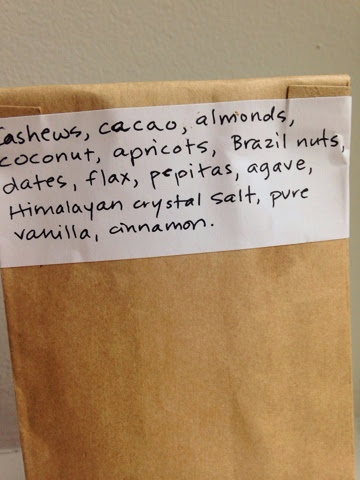 Cashews, cacao, almonds,
coconut, apricots, Brazil nuts,
dates, flax, pepitas, agave,
Himalayan crystal salt, pure
vanilla, cinnamon.